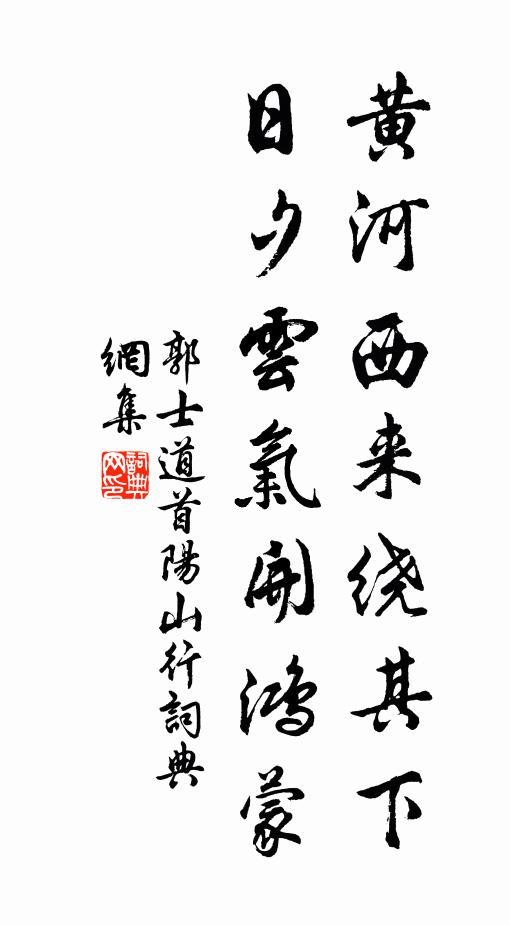 黄河西来绕其下
日夕雲氣開鴻蒙
郭士道首陽山行詞典
網集
詞典網印